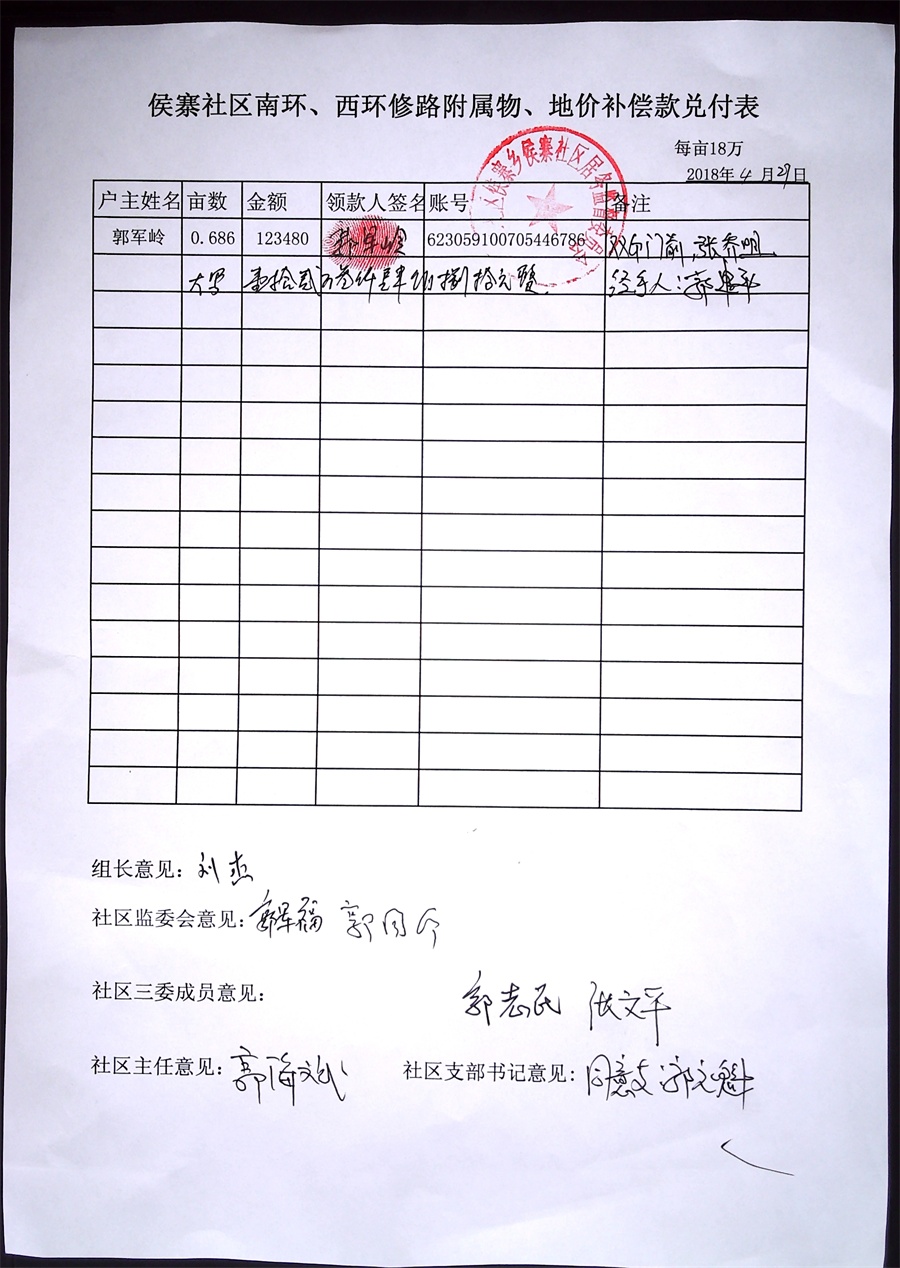 侯寨社区南环、西环修路附属物、地价补偿款兑付表
每亩18万
2018年4月29日
户主姓名 亩数 金额 领款人签名 账号 备注
郭军岭 0.686 123480 郭军岭 623059100705446786 张乔
大写 壹拾贰万叁仟肆佰捌拾元整 经手人:郭
侯寨乡侯寨社区居务监督委员会
组长意见:刘杰
社区监委会意见:郭军福 郭同
社区三委成员意见: 郭志民 张文平
社区主任意见:郭海 社区支部书记意见:同意支 郭文魁